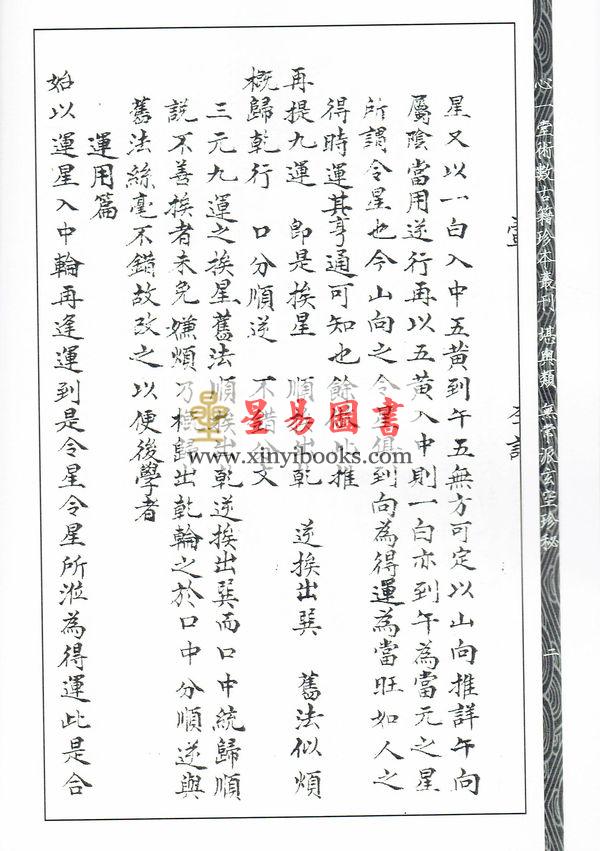 心一堂術數古籍珍本叢刊 堪輿類 無常派玄空珍秘
二
星又以一白入中五黃到午五無方可定以山向推詳午向
屬陰當用逆行再以五黃入中則一白亦到午為當元之星
所謂令星也今山向之令星俱到向為得運為當旺如人之
得時運其亨通可知也餘此推
再提九運 即是挨星 順挨出乾 逆挨出巽 舊法似煩
概歸乾行 口分順逆 不錯分文
三元九運之挨星舊法順挨出乾逆挨出巽而口中統歸順
說不善挨者未免嫌煩乃概歸出乾輪之於口中分順逆與
舊法絲毫不錯故改之以便後學者
運用篇
始以運星入中輪再逢運到是令星令星所涖為得運此是合
星易圖書
www.xinyibooks.com